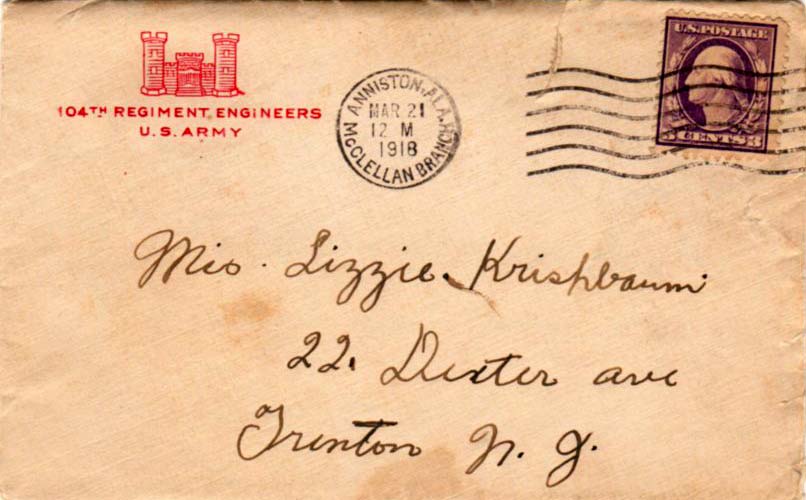 104TH REGIMENT ENGINEERS
U.S. ARMY
ANNISTON, ALA.
MAR 21
12 M
1918
McCLELLAN BRANCH
U.S. POSTAGE
3 CENTS 3
Mis. Lizzie. Krishbaum
22. Dexter ave
Trenton N. J.